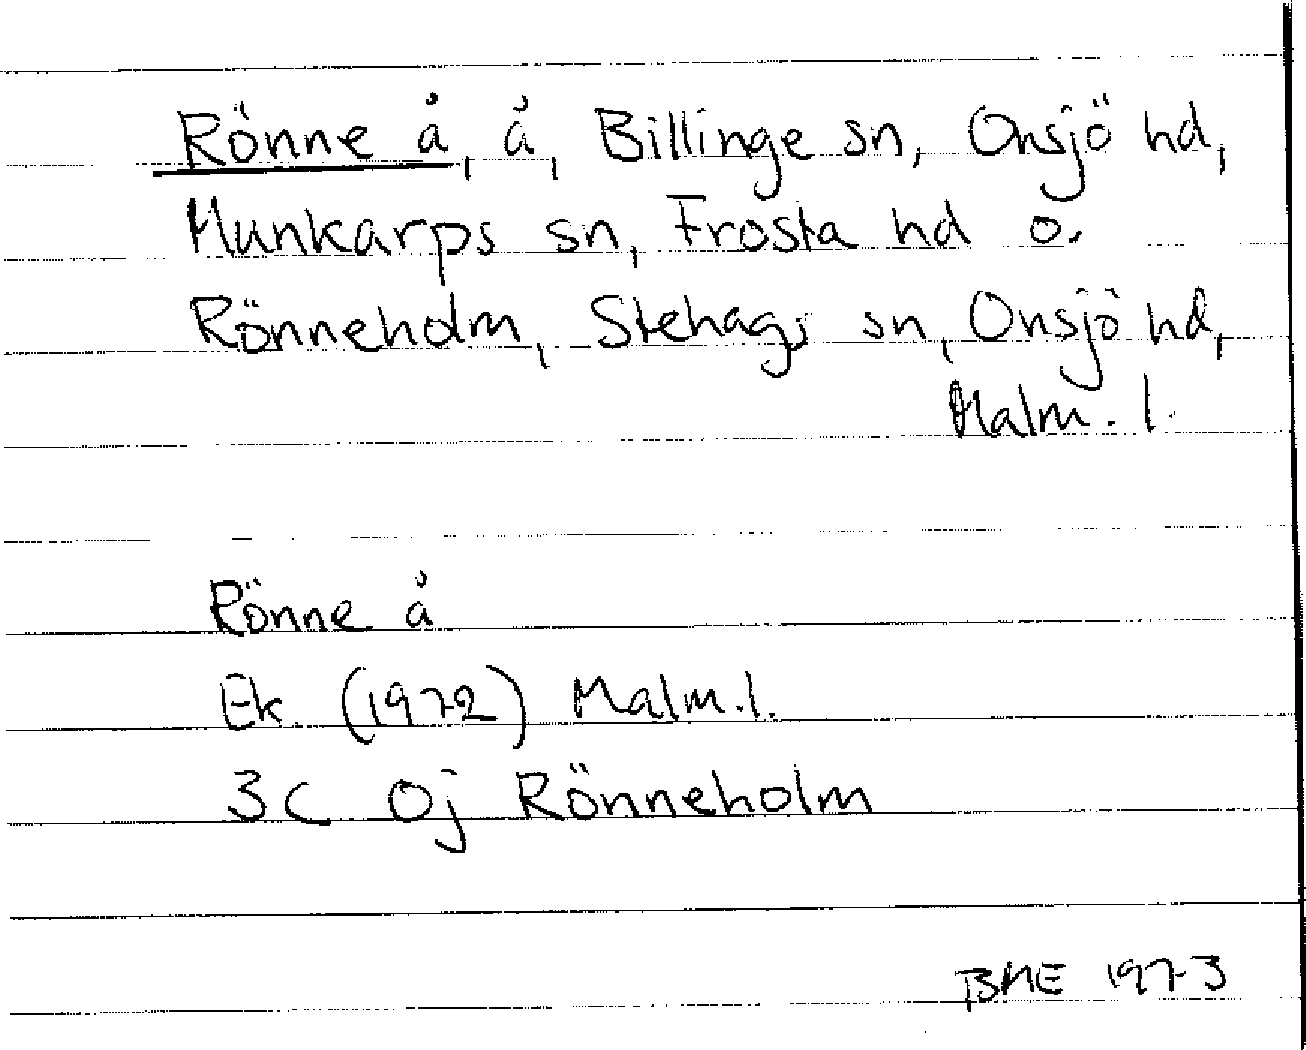 Rönne å, å, Billinge sn, Onsjö hd,
Munkarps sn, Frosta hd o.
Rönneholm, Stehags sn, Onsjö hd,
Malm. l.
Rönne å
Ek (1972) Malm.l.
3C 0j Rönneholm
BME 1973